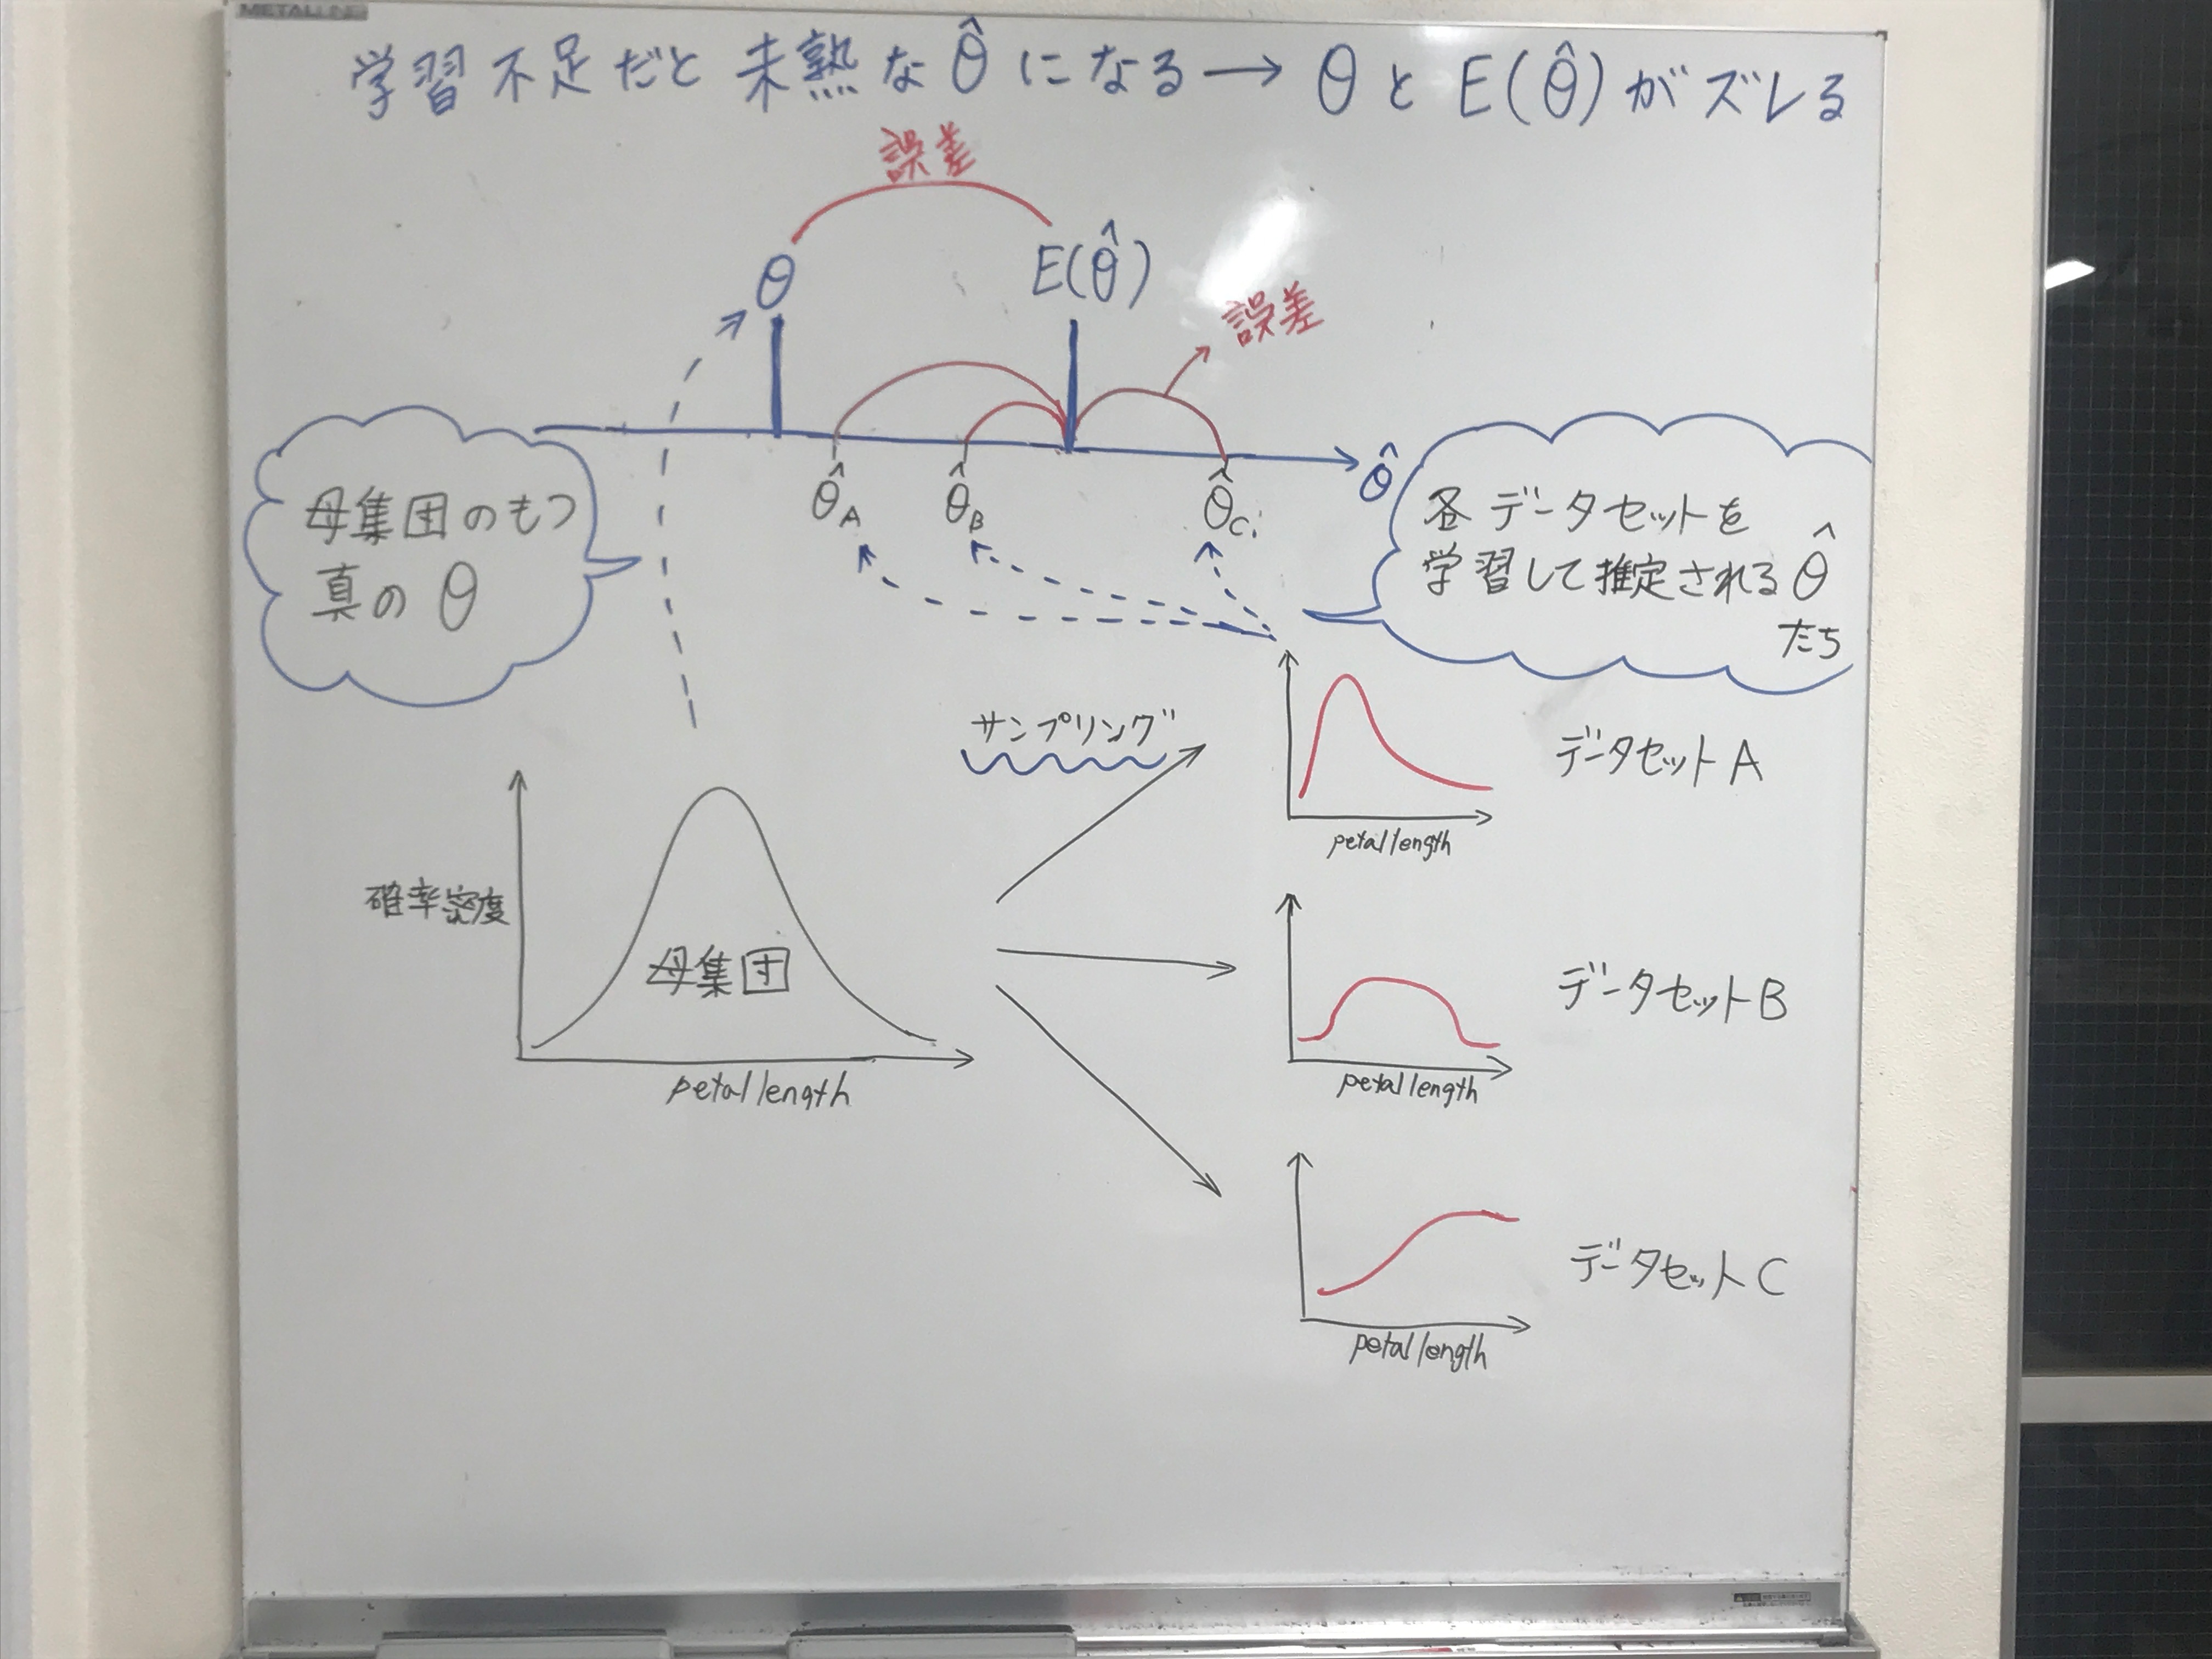 学習不足だと未熟なθ̂になる→θとE(θ̂)がズレる
誤差
θ
E(θ̂)
誤差
θ̂
θ̂A
θ̂B
θ̂C
母集団のもつ
真のθ
各データセットを
学習して推定されるθ̂
たち
サンプリング
データセットA
petal length
確率密度
母集団
petal length
データセットB
petal length
データセットC
petal length